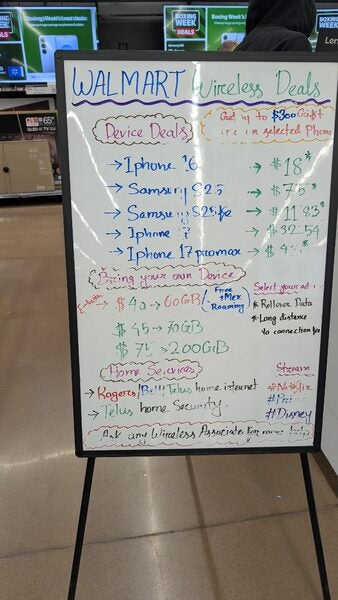 BOXING WEEK DEALS
Boxing Week
BOXING WEEK DEALS
65"
QLED TV
WALMART Wireless Deals
Device Deals
Get up to $300 Gift
in selected Phone
→ Iphone 16 → $18*
→ Samsung S25 → $
→ Samsung S25fe → $11.83*
→ Iphone → $32.54
→ Iphone 17 promax → $
Bring your own Device
E-transfer
$40 → 60GB (Free +Mex Roaming)
$45 → 70GB
$75 → 200GB
Select your
* Rollover Data
* Long distance
No connection fee
Home Services
→ Rogers/Bell/Telus home internet
→ Telus home Security.
Stream
#Netflix
#Disney
Ask any Wireless Associate For more help